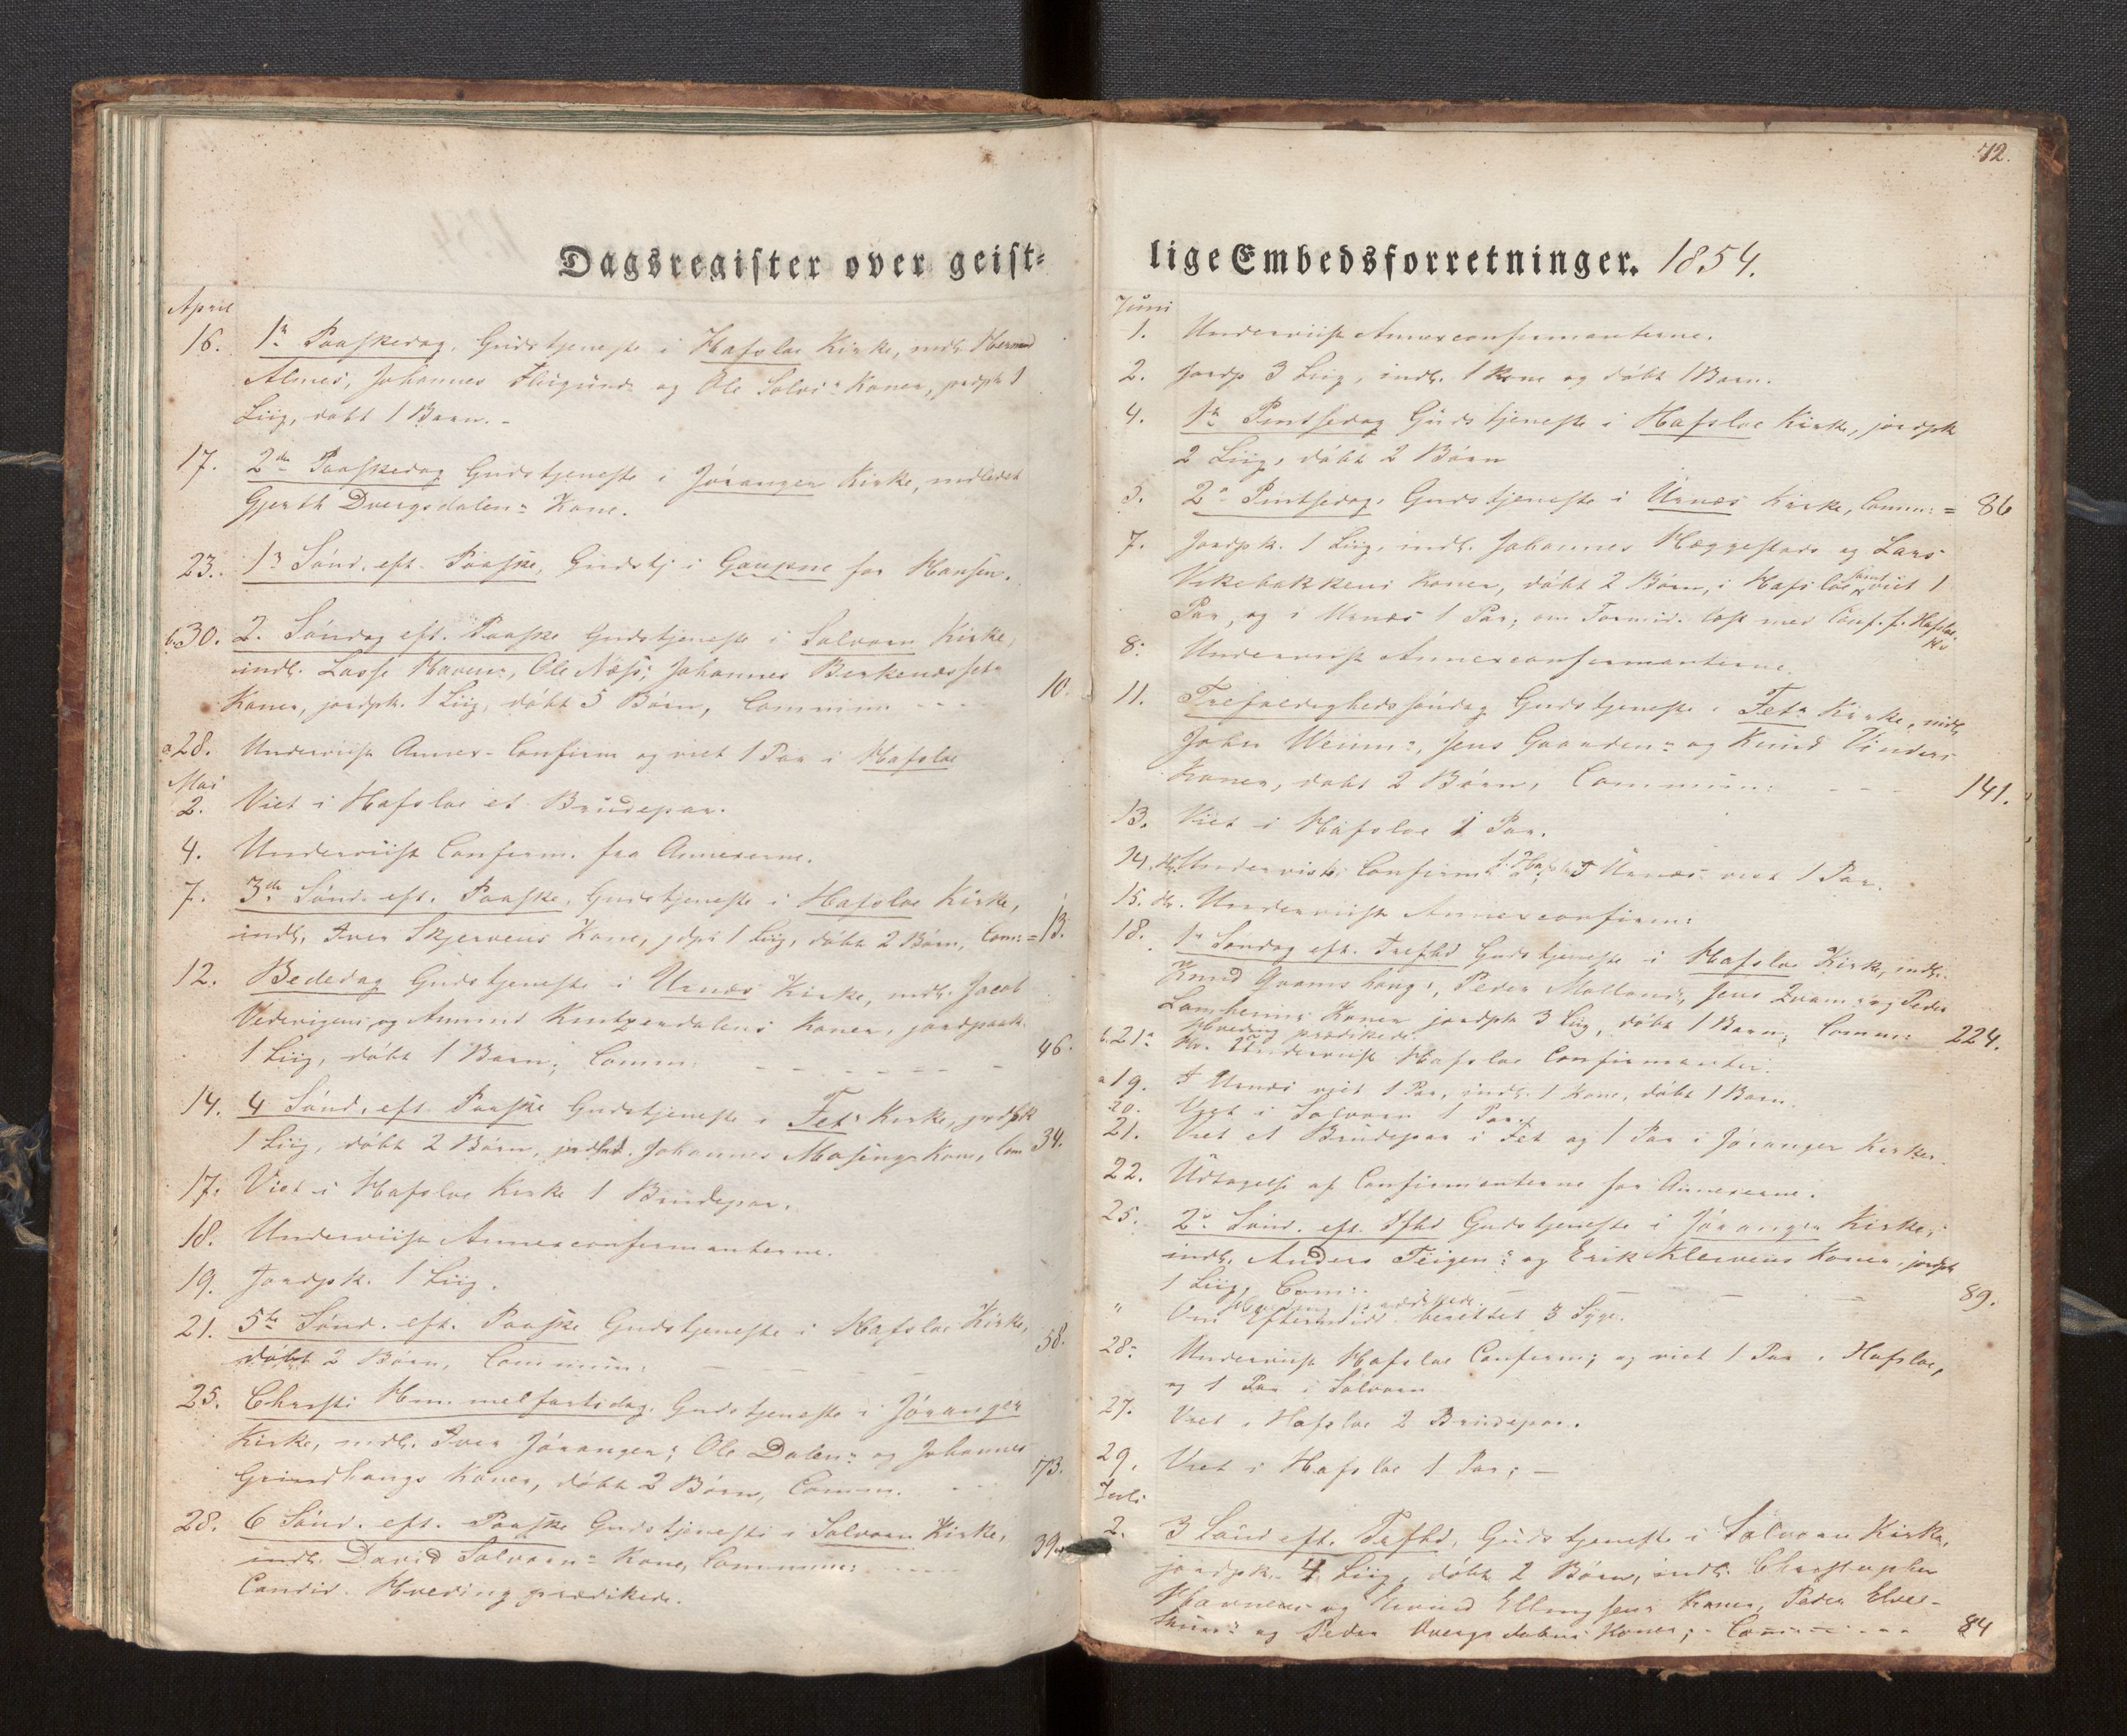 Dagsregister over geist=
April
16. 1ste Paaskedag. Gudstjeneste i Hafsloe Kirke, indl.
Almes, Johannes og Ole Solvis Koner, jordpk 1
Liig, døbt 1 Barn.
17. 2den Paaskedag Gudstjeneste i Joranger Kirke, indledet
Gjerth Dvergsdalens Kone.
23. 1ste Sønd. eft. Paaske, Gudstj. i Gaupne for Hansen.
b. 30. 2. Søndag eft. Paaske Gudstjeneste i Solvorn Kirke,
indl. Lasse Havens, Ole Næss, Johannes
Koner, jordpk. 1 Liig, døbt 5 Børn, Commun: - - - 10.
a 28. Underviist Annex-Confirm og viet 1 Par i Hafsloe
Mai
2. Viet i Hafsloe et Brudepar.
4. Underviist Confirm. fra Annexerne.
7. 3die Sønd. eft. Paaske, Gudstjeneste i Hafsloe Kirke,
indl. Iver Skjervens Kone, jdpk 1 Liig, døbt 2 Børn, Com: = 13.
12. Bededag Gudstjeneste i Urnæs Kirke, indl. Jacob
og Amund Kone, jordpaak.
1 Liig, døbt 1 Barn; Comm: - - - - 46.
14. 4 Sønd. eft. Paaske Gudstjeneste i Fets Kirke, jordpk
1 Liig, døbt 2 Børn, indled. Johannes Kone, Com 34.
17. Viet i Hafsloe Kirke 1 Brudepar.
18. Underviist Annexconfirmanterne.
19. Jordpk. 1 Liig.
21. 5te Sønd. eft. Paaske Gudstjeneste i Hafsloe Kirke,
døbt 2 Børn, Commun: - - 58.
25. Christi Himmelfartsdag. Gudstjeneste i Joranger
Kirke, indl. Iver Joranger, Ole Dalens og Johannes
Koner, døbt 2 Børn, Comm. - - - 73.
28. 6 Sønd. eft. Paaske Gudstjeneste i Solvorn Kirke,
indl. David Solvorns Kone, Commun: - - - 39.
Candid. Hveding prædikede.
72.
lige Embedsforretninger. 1854.
Juni
1. Underviist Annexconfirmanterne.
2. Jordp 3 Liig, indl. 1 Kone og døbt 1 Barn.
4. 1ste Pintsedag Gudstjeneste i Hafsloe Kirke, jordpk
2 Liig, døbt 2 Børn
5. 2den Pintsedag. Gudstjeneste i Urnæs Kirke, Commun: = 86
7. Jordpk. 1 Liig, indl. Johannes Heggestads og Lars
Vikebakkens Koner, døbt 2 Børn, i Hafsloe samt viet 1
Par, og i Urnæs 1 Par; om Formid. læst med Conf. f. Hafsloe
8. Underviist Annexconfirmanterne.
11. Trefoldighedssøndag Gudstjeneste i Fets Kirke, indl.
John Jens Gaardens og Knud
Koner, døbt 2 Børn, Commun: - - - 141.
13. Viet i Hafsloe 1 Par.
14. Underviist Confirm. f. Hafsl. I Urnæs viet 1 Par.
15. Hv. Underviist Annexconfirm:
18. 1ste Søndag eft. Trefhd Gudstjeneste i Hafsloe Kirke, indl.
Knud Peder Mollands, Jens Qvams og Peder
Lomheims Koner, jordpk 3 Liig, døbt 1 Barn; Commun: 224.
Hveding prædikede.
b. 21. Hv. Underviist Hafsloe Confirmanter.
a 19. I Urnæs viet 1 Par, indl. 1 Kone, døbt 1 Barn.
20. Viet i Solvorn 1 Par.
21. Viet et Brudepar i Fet og 1 Par i Joranger Kirker.
22. Udtagelse af Confirmanterne for Annexerne.
25. 2den Sønd. eft. Tfhd Gudstjeneste i Joranger Kirke,
indl. Anders Teigens og Erik Klervens Koner, jordpk
1 Liig, Com: - - - 89.
Hveding prædikede.
" Om Eftermidd. berettet 3 Syge.
28. Underviist Hafsloe Confirm; og viet 1 Par i Hafsloe,
og 1 Par i Solvorn
27. Viet i Hafsloe 2 Brudepar.
29. Viet i Hafsloe 1 Par; -
Juli
2. 3 Sønd eft. Trefhd, Gudstjeneste i Solvorn Kirke,
jordpk. 4 Liig, døbt 2 Børn, indl. Christopher
og Ellingsens Koner, Peder
og Peder Dvergsdalens Koner; Comm: - - - 84